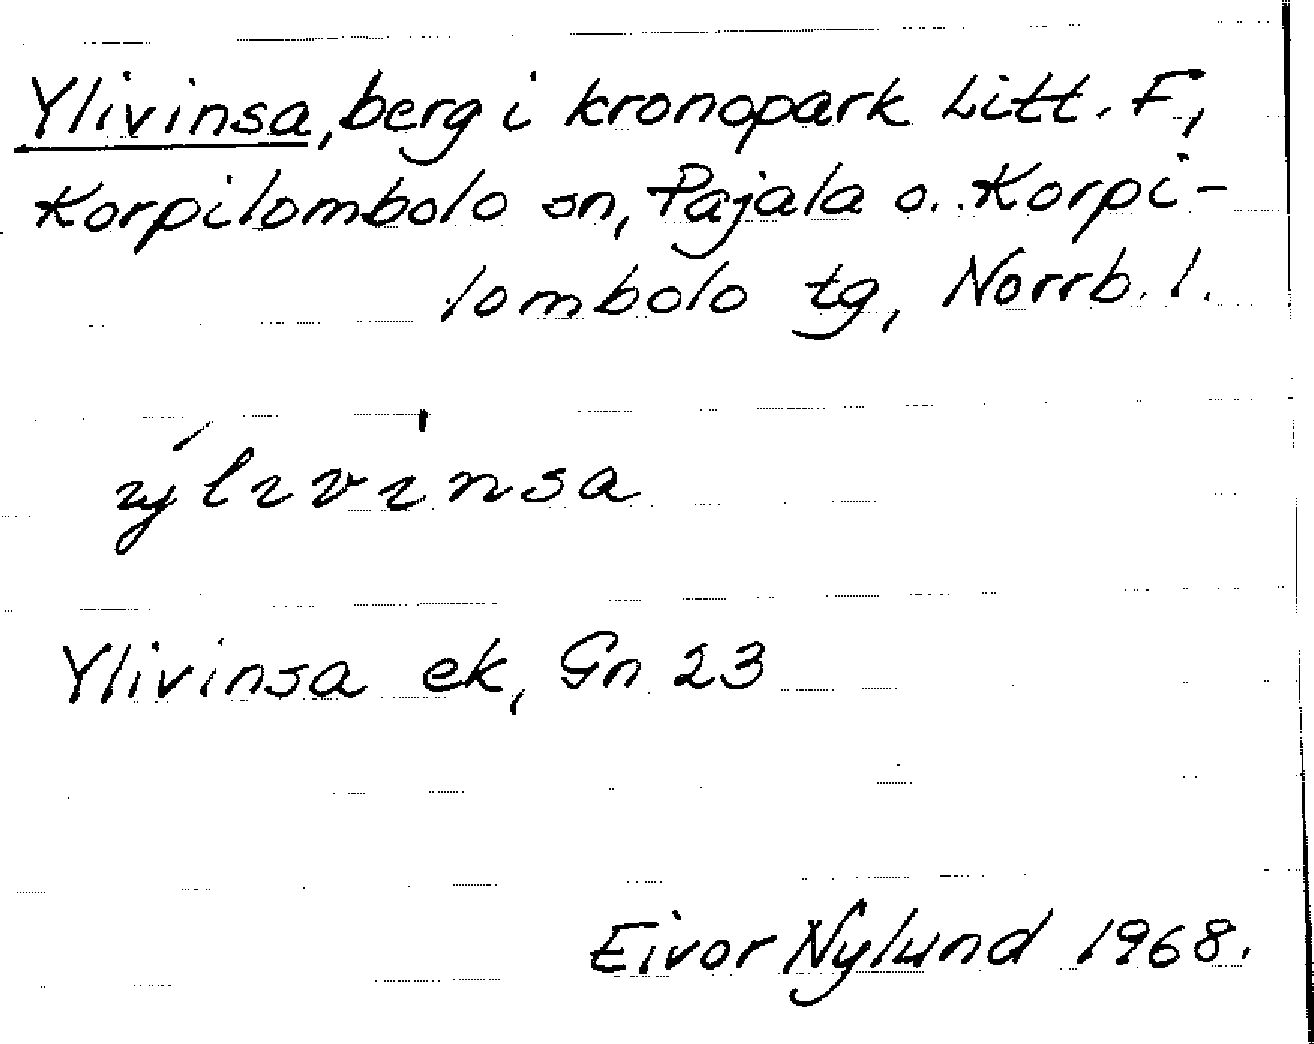 Ylivinsa, berg i kronopark Litt. F,
Korpilombolo sn, Pajala o. Korpi-
lombolo tg, Norrb. l.
ýlivìnsa
Ylivinsa ek, Gn 23
Eivor Nylund 1968.